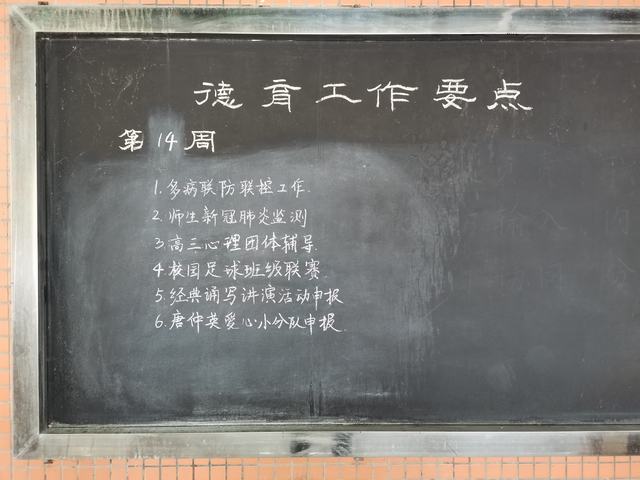 德育工作要点
第14周
1.多病联防联控工作.
2.师生新冠肺炎监测
3.高三心理团体辅导.
4.校园足球班级联赛.
5.经典诵写讲演活动申报
6.唐仲英爱心小分队申报.